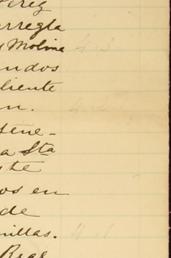 Perez
arregla
y Molina
undos
liente
n.
tene-
a Sta
te
os en
de
illas.
Real